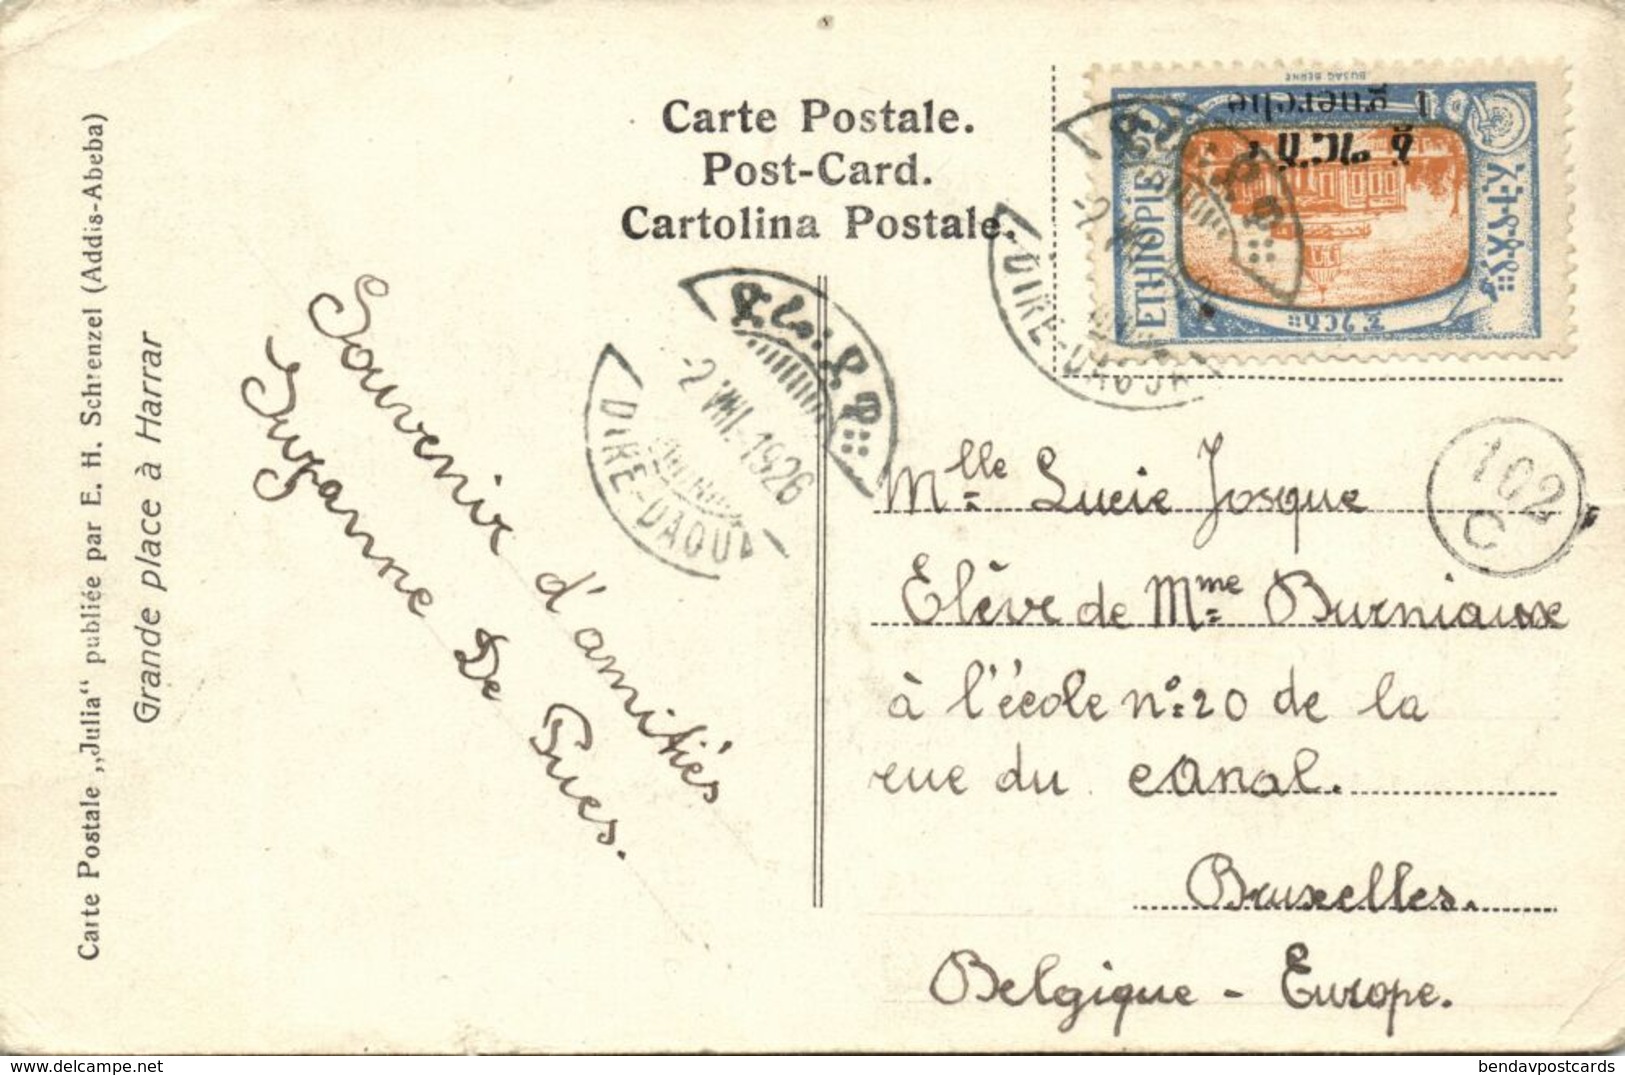 Carte Postale „Julia“ publiée par E. H. Schrenzel (Addis-Abeba)
Grande place à Harrar
Carte Postale.
Post-Card.
Cartolina Postale.
BUSAG BERNE
ETHIOPIE
1 guerche
DIRE-DAOUA
-2.VIII.1926
DIRE-DAOUA
102
C
Souvenir d'amitiés
Suzanne De Pues.
Mlle Lucie Josque
Elève de Mme Burniaux
à l'école n° 20 de la
rue du canal.
Bruxelles.
Belgique - Europe.
bendavpostcards